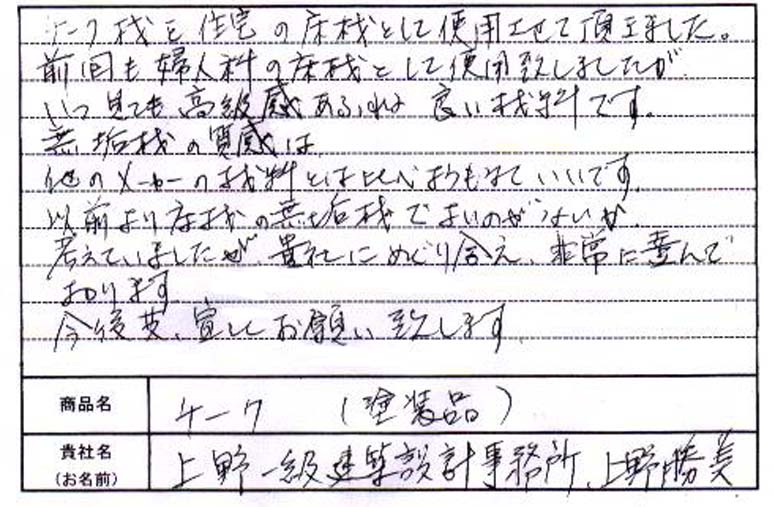 チーク材を住宅の床材として使用させて頂きました。
前回も婦人科の床材として使用致しましたが
いつ見ても高級感あふれる良い材料です。
無垢材の質感は
他のメーカーの材料とは比べようもなくいいです。
以前より床材の無垢材でよいのがないか
考えていましたが、貴社にめぐり合え、非常に喜んで
おります。
今後共、宜しくお願い致します
商品名 チーク （塗装品）
貴社名 上野一級建築設計事務所、上野勝美
(お名前)